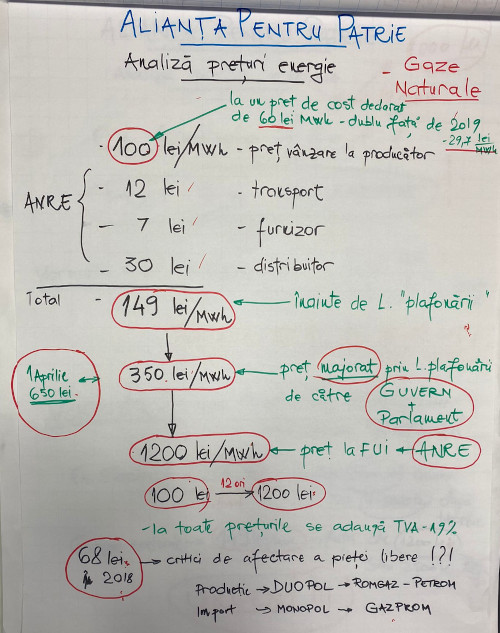 ALIANȚA PENTRU PATRIE
Analiză prețuri energie
- Gaze Naturale
la un preț de cost declarat
de 60 lei MWh - dublu față de 2019
- 29,7 lei/MWh
- 100 lei/MWh - preț vânzare la producător
ANRE
- 12 lei - transport
- 7 lei - furnizor
- 30 lei - distribuitor
Total - 149 lei/MWh ← înainte de L. "plafonării"
1 Aprilie
650 lei.
350. lei/MWh ← preț majorat prin L. plafonării
de către GUVERN
+
Parlament
1200 lei/MWh ← preț la FUI ← ANRE
100 lei 12 ori → 1200 lei.
- la toate prețurile se adaugă TVA - 19%
68 lei.
în 2018
→ critici de afectare a pieței libere !?!
Producție → DUOPOL → ROMGAZ - PETROM
Import → MONOPOL → GAZPROM